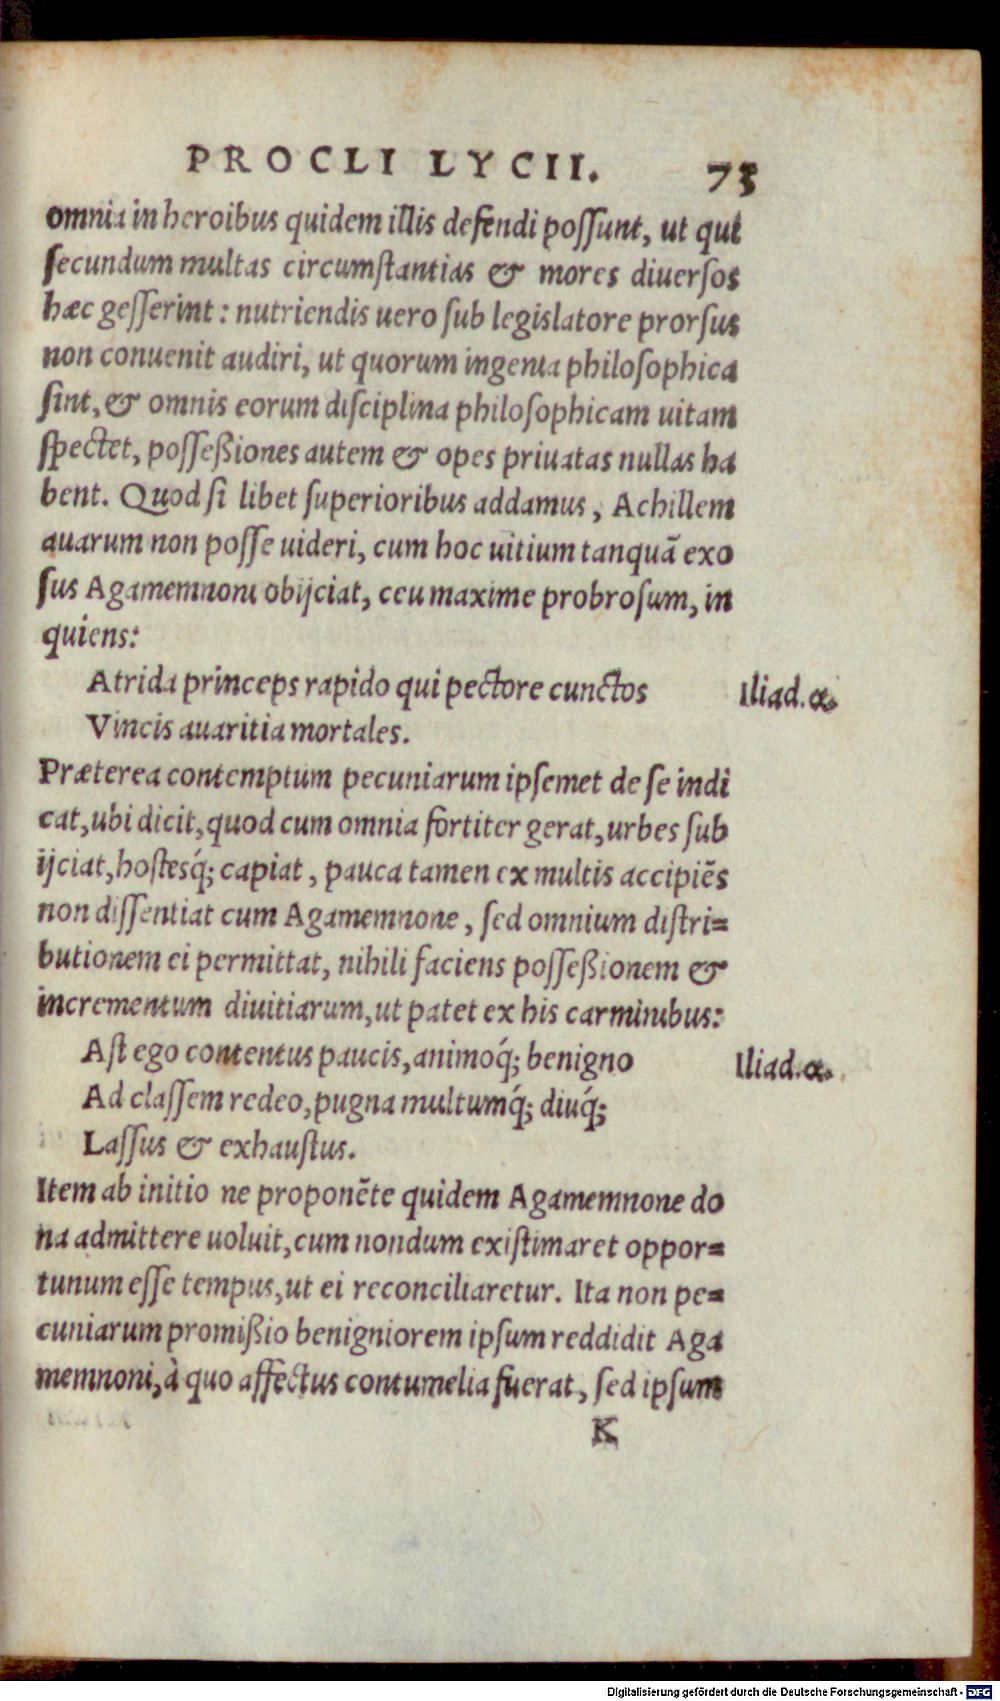 PROCLI LYCII. 73
omnia in heroibus quidem illis defendi poſſunt, ut qui
ſecundum multas circumſtantias & mores diuerſos
hæc geſſerint: nutriendis uero ſub legislatore prorſus
non conuenit audiri, ut quorum ingenia philoſophica
ſint, & omnis eorum diſciplina philoſophicam uitam
ſpectet, poſſeßiones autem & opes priuatas nullas ha
bent. Quod ſi libet ſuperioribus addamus, Achillem
auarum non poſſe uideri, cum hoc uitium tanquā exo
ſus Agamemnoni obijciat, ceu maxime probroſum, in
quiens:
Atrida princeps rapido qui pectore cunctos Iliad. α.
Vincis auaritia mortales.
Præterea contemptum pecuniarum ipſemet de ſe indi
cat, ubi dicit, quod cum omnia fortiter gerat, urbes ſub
ijciat, hoſtesq́; capiat, pauca tamen ex multis accipiēs
non diſſentiat cum Agamemnone, ſed omnium diſtri=
butionem ei permittat, nihili faciens poſſeßionem &
incrementum diuitiarum, ut patet ex his carminibus:
Aſt ego contentus paucis, animoq́; benigno Iliad. α.
Ad claſſem redeo, pugna multumq́; diuq́;
Laſſus & exhauſtus.
Item ab initio ne proponēte quidem Agamemnone do
na admittere uoluit, cum nondum exiſtimaret oppor=
tunum eſſe tempus, ut ei reconciliaretur. Ita non pe=
cuniarum promißio benigniorem ipſum reddidit Aga
memnoni, à quo affectus contumelia fuerat, ſed ipſum
K
Digitalisierung gefördert durch die Deutsche Forschungsgemeinschaft - DFG